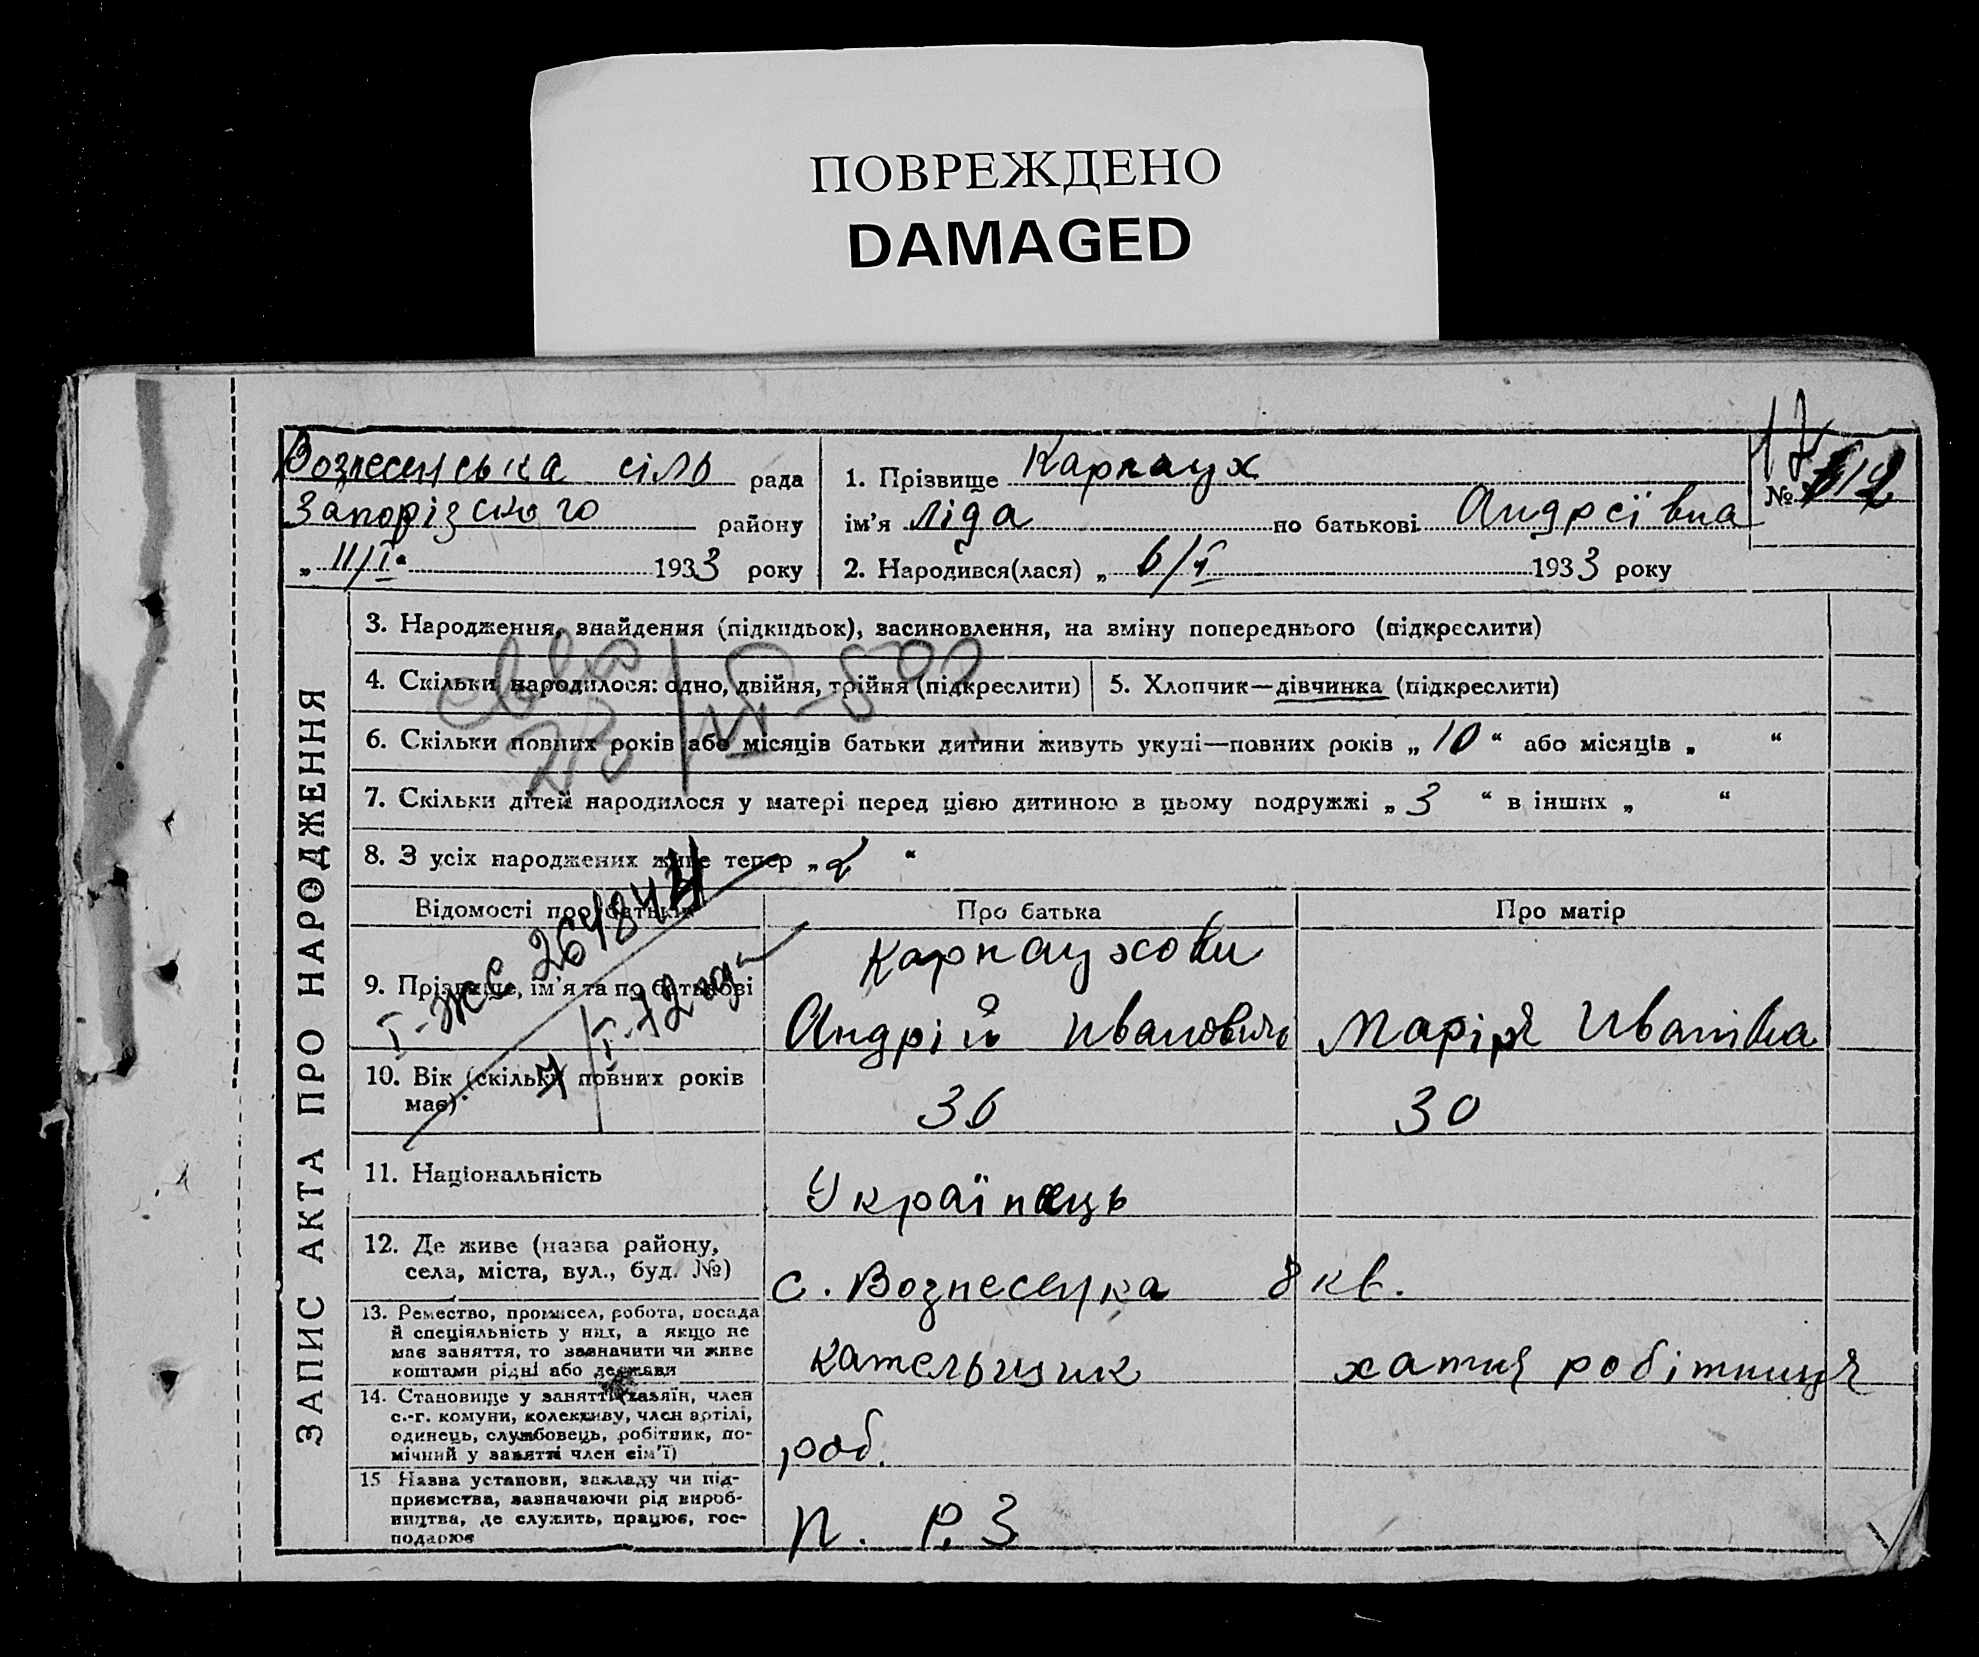 ПОВРЕЖДЕНО
DAMAGED
Вознесенська сіль рада
Запорізского району
„ 11/I “ 1933 року
1. Прізвище Карнаух
ім’я Ліда по батькові Андреївна
2. Народився(лася) „ 6/I 1933 року
17
№ 12
ЗАПИС АКТА ПРО НАРОДЖЕННЯ
3. Народження, знайдення (підкидьок), засиновлення, на зміну попереднього (підкреслити)
4. Скільки народилося: одно, двійня, трійня (підкреслити)
5. Хлопчик—дівчинка (підкреслити)
6. Скільки повних років або місяців батьки дитини живуть укупі—повних років „ 10 “ або місяців „ “
7. Скільки дітей народилося у матері перед цією дитиною в цьому подружжі „ 3 “ в інших „ “
8. З усіх народжених живе тепер „ 2 “
Відомості про батьків
Про батька
Про матір
9. Прізвище, ім’я та по батькові
Карнаухови
Андрій Иванович
Марія Иванівна
I-ЖС 264844
7/I-72
10. Вік (скільки повних років
має)
36
30
11. Національність
Українець
12. Де живе (назва району,
села, міста, вул., буд. №)
с. Вознесенка 8 кв.
13. Ремество, промисел, робота, посада
й спеціяльність у них, а якщо не
має заняття, то зазначити чи живе
коштами рідні або держави
кательщик
хатня робітниця
14. Становище у занятті (хазяїн, член
с.-г. комуни, колективу, член артілі,
одинець, службовець, робітник, по-
мічний у занятті член сім’ї)
роб.
15 Назва установи, закладу чи під-
приємства, зазначаючи рід вироб-
ництва, де служить, працює, гос-
подарює
П. Р.З